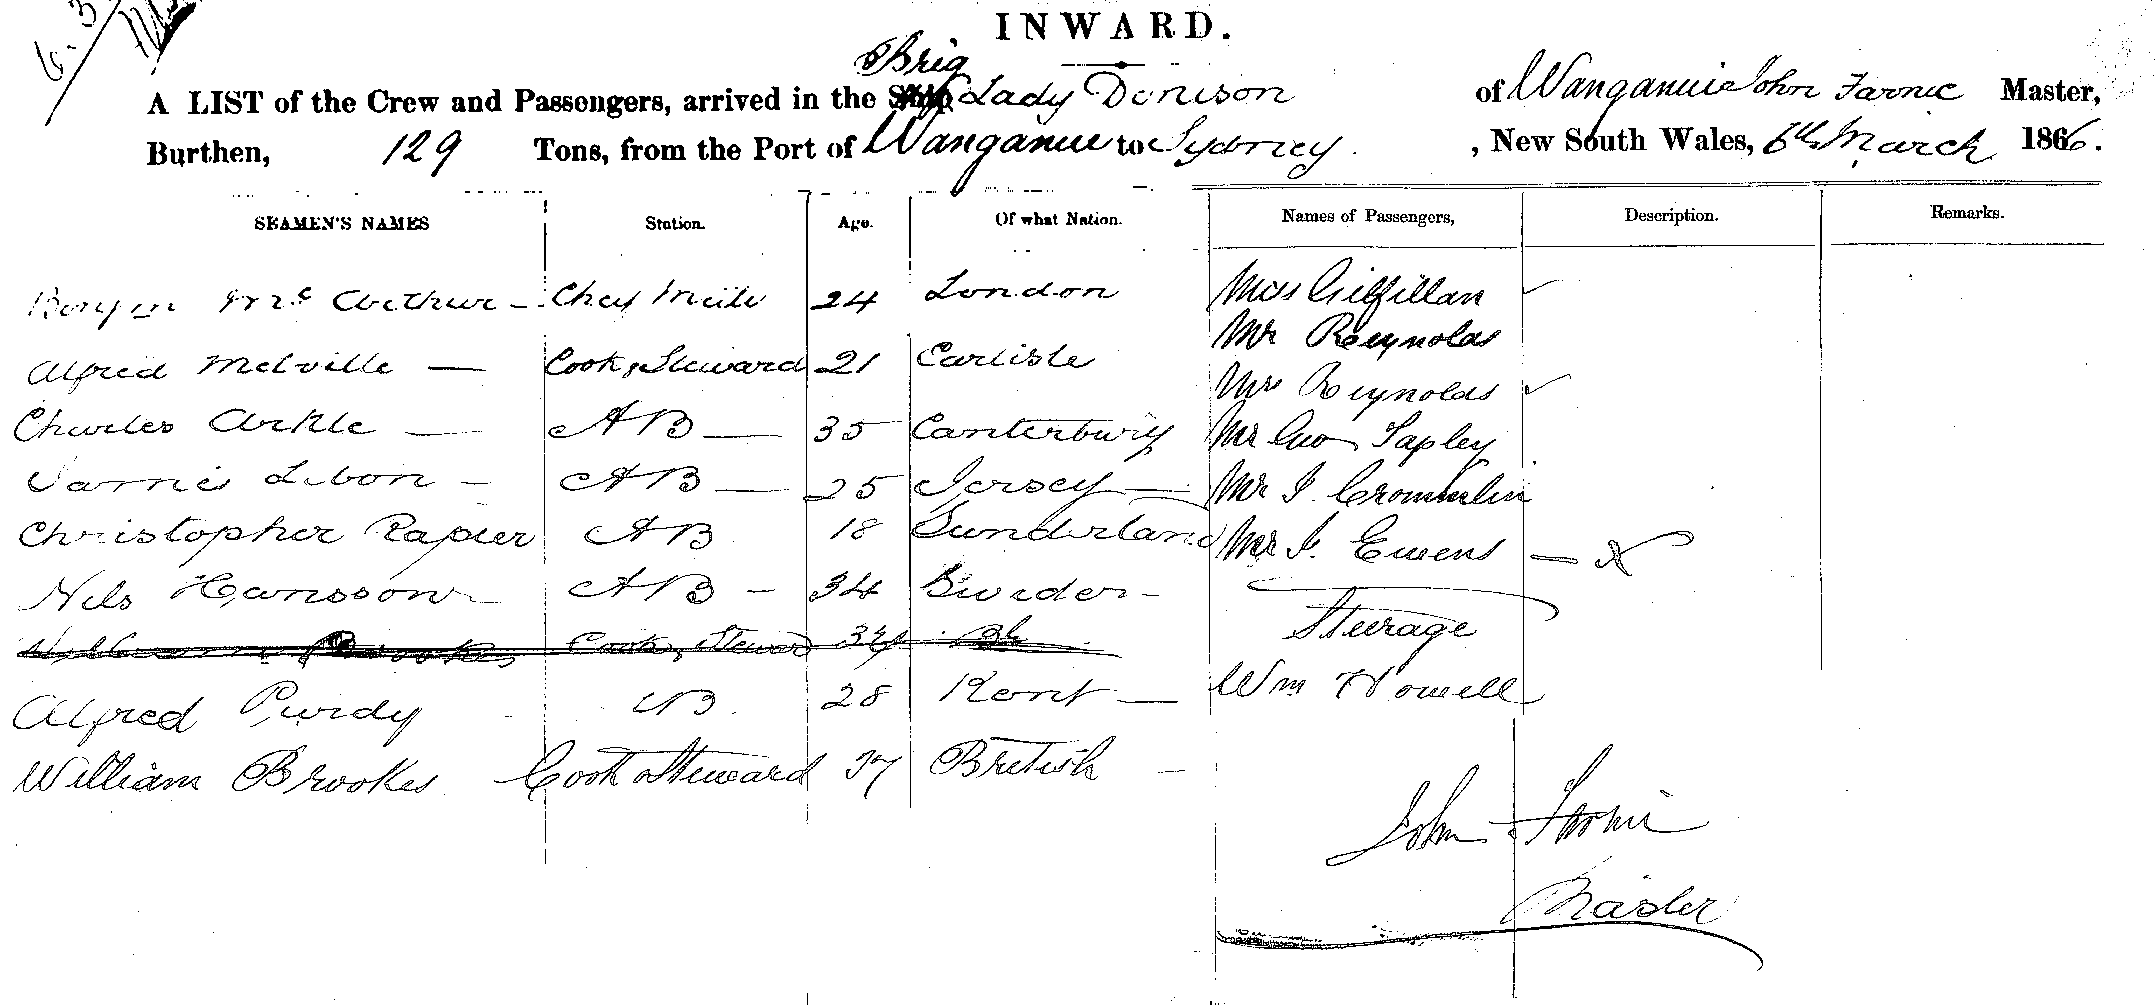 6.3
INWARD.
Brig
A LIST of the Crew and Passengers, arrived in the Ship Lady Denison of Wanganui John Farnie Master,
Burthen, 129 Tons, from the Port of Wanganui to Sydney, New South Wales, 6th March 1866.
SEAMEN'S NAMES Station. Age. Of what Nation. Names of Passengers, Description. Remarks.
Benjm McArthur — Chef Mate 24 London Mrs Gilfillan ✓
Mr Reynolds
Alfred Melville — Cook, Steward 21 Carlisle
Mrs Reynolds ✓
Charles Arkle — AB — 35 Canterbury Mr Geo Tapley
Lebon — AB — 25 Jersey — Mr J. Crommelin
Christopher Rapier AB 18 Sunderland Mr J. Ewens — X
Nils Hansson — AB — 34 Sweden —
Steerage
William Brookes Cook, Steward 37 Br
Alfred Purdy AB 28 Kent — Wm Howell
William Brookes Cook & Steward 37 British —
John Farnie
Master